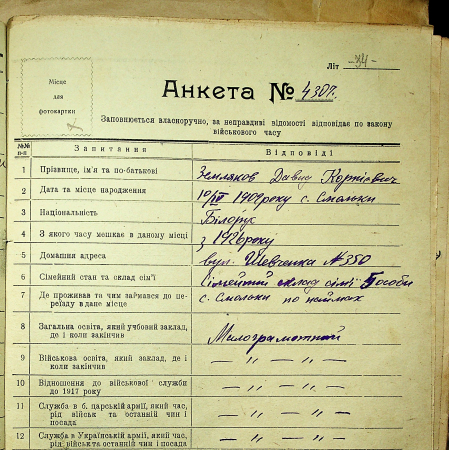 Літ -34-
Місце
для
фотокартки
Анкета № 4307.
Заповнюється власноручно, за неправдиві відомості відповідає по закону
військового часу
№№ п-п Запитання Відповіді
1 Прізвище, ім'я та по-батькові Земляков Давид
2 Дата та місце народження 10/IV 1909 року с.
3 Національність Білорус
4 З якого часу мешкає в даному місці з 1926 року
5 Домашня адреса вул. Шевченка № 350
6 Сімейний стан та склад сім'ї Сімейний склад сім'ї 5 особи
7 Де проживав та чим займався до пе-
реїзду в дане місце с. по наймах
8 Загальна освіта, який учбовий заклад,
де і коли закінчив Малограмотний
9 Військова освіта, який заклад, де і
коли закінчив — „ — „ —
10 Відношення до військової служби
до 1917 року — „ — „ —
11 Служба в б. царській армії, який час,
рід військ та останній чин і
посада — „ — „ —
12 Служба в Українській армії, який час,
рід військ та останній чин і посада — „ — „ —